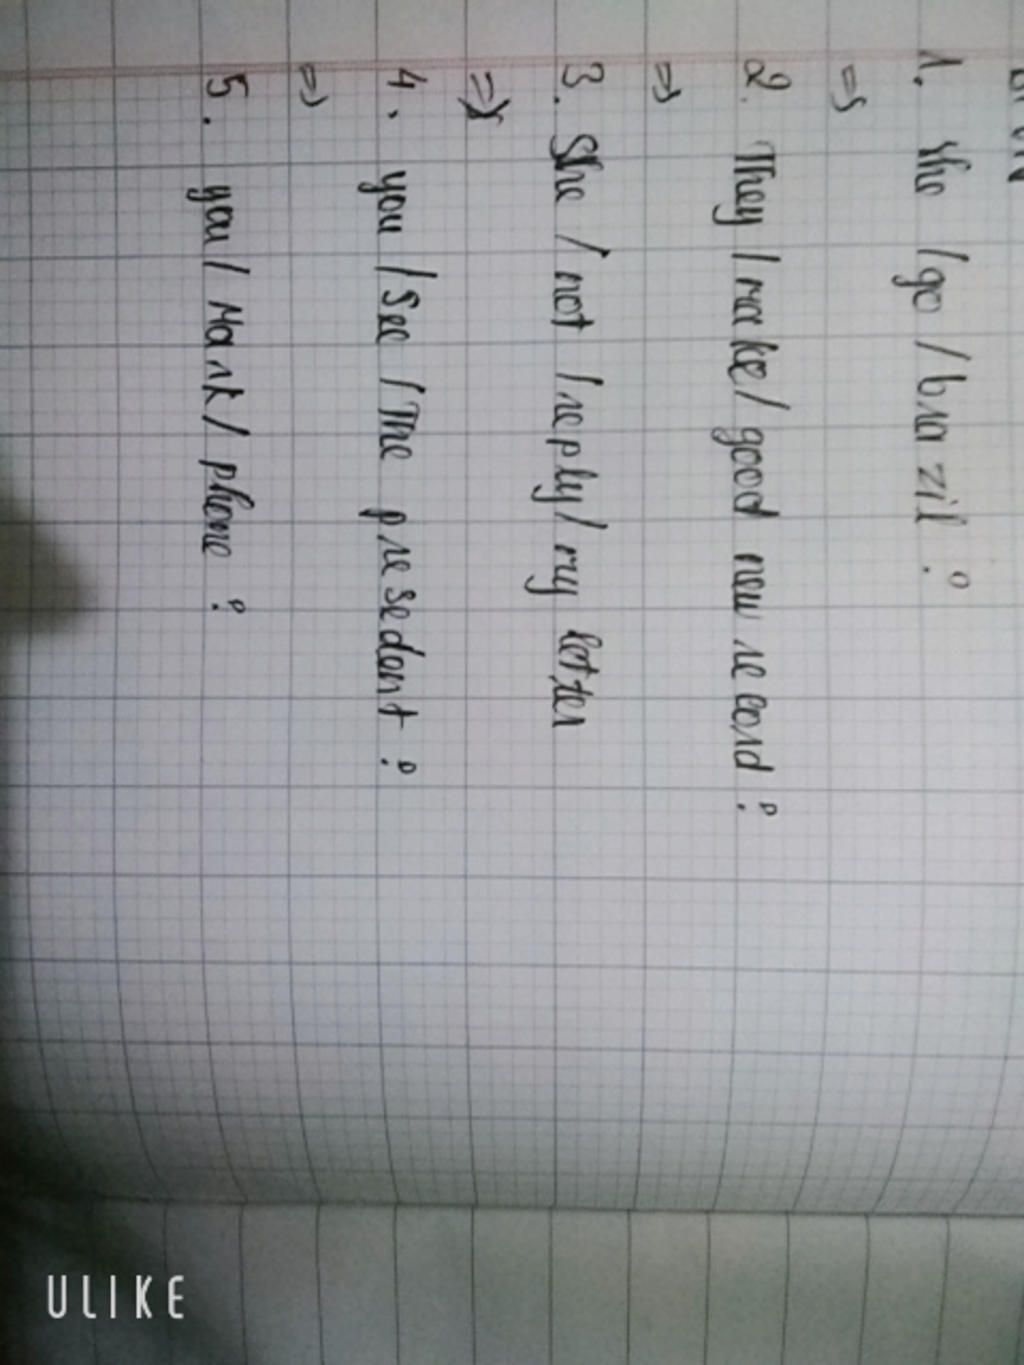 1. she / go / brazil ?
=>
2. They / make / good new record ?
=>
3. She / not / reply / my letter
=>
4. you / see / The presedent ?
=>
5. you / Mark / phone ?
ULIKE